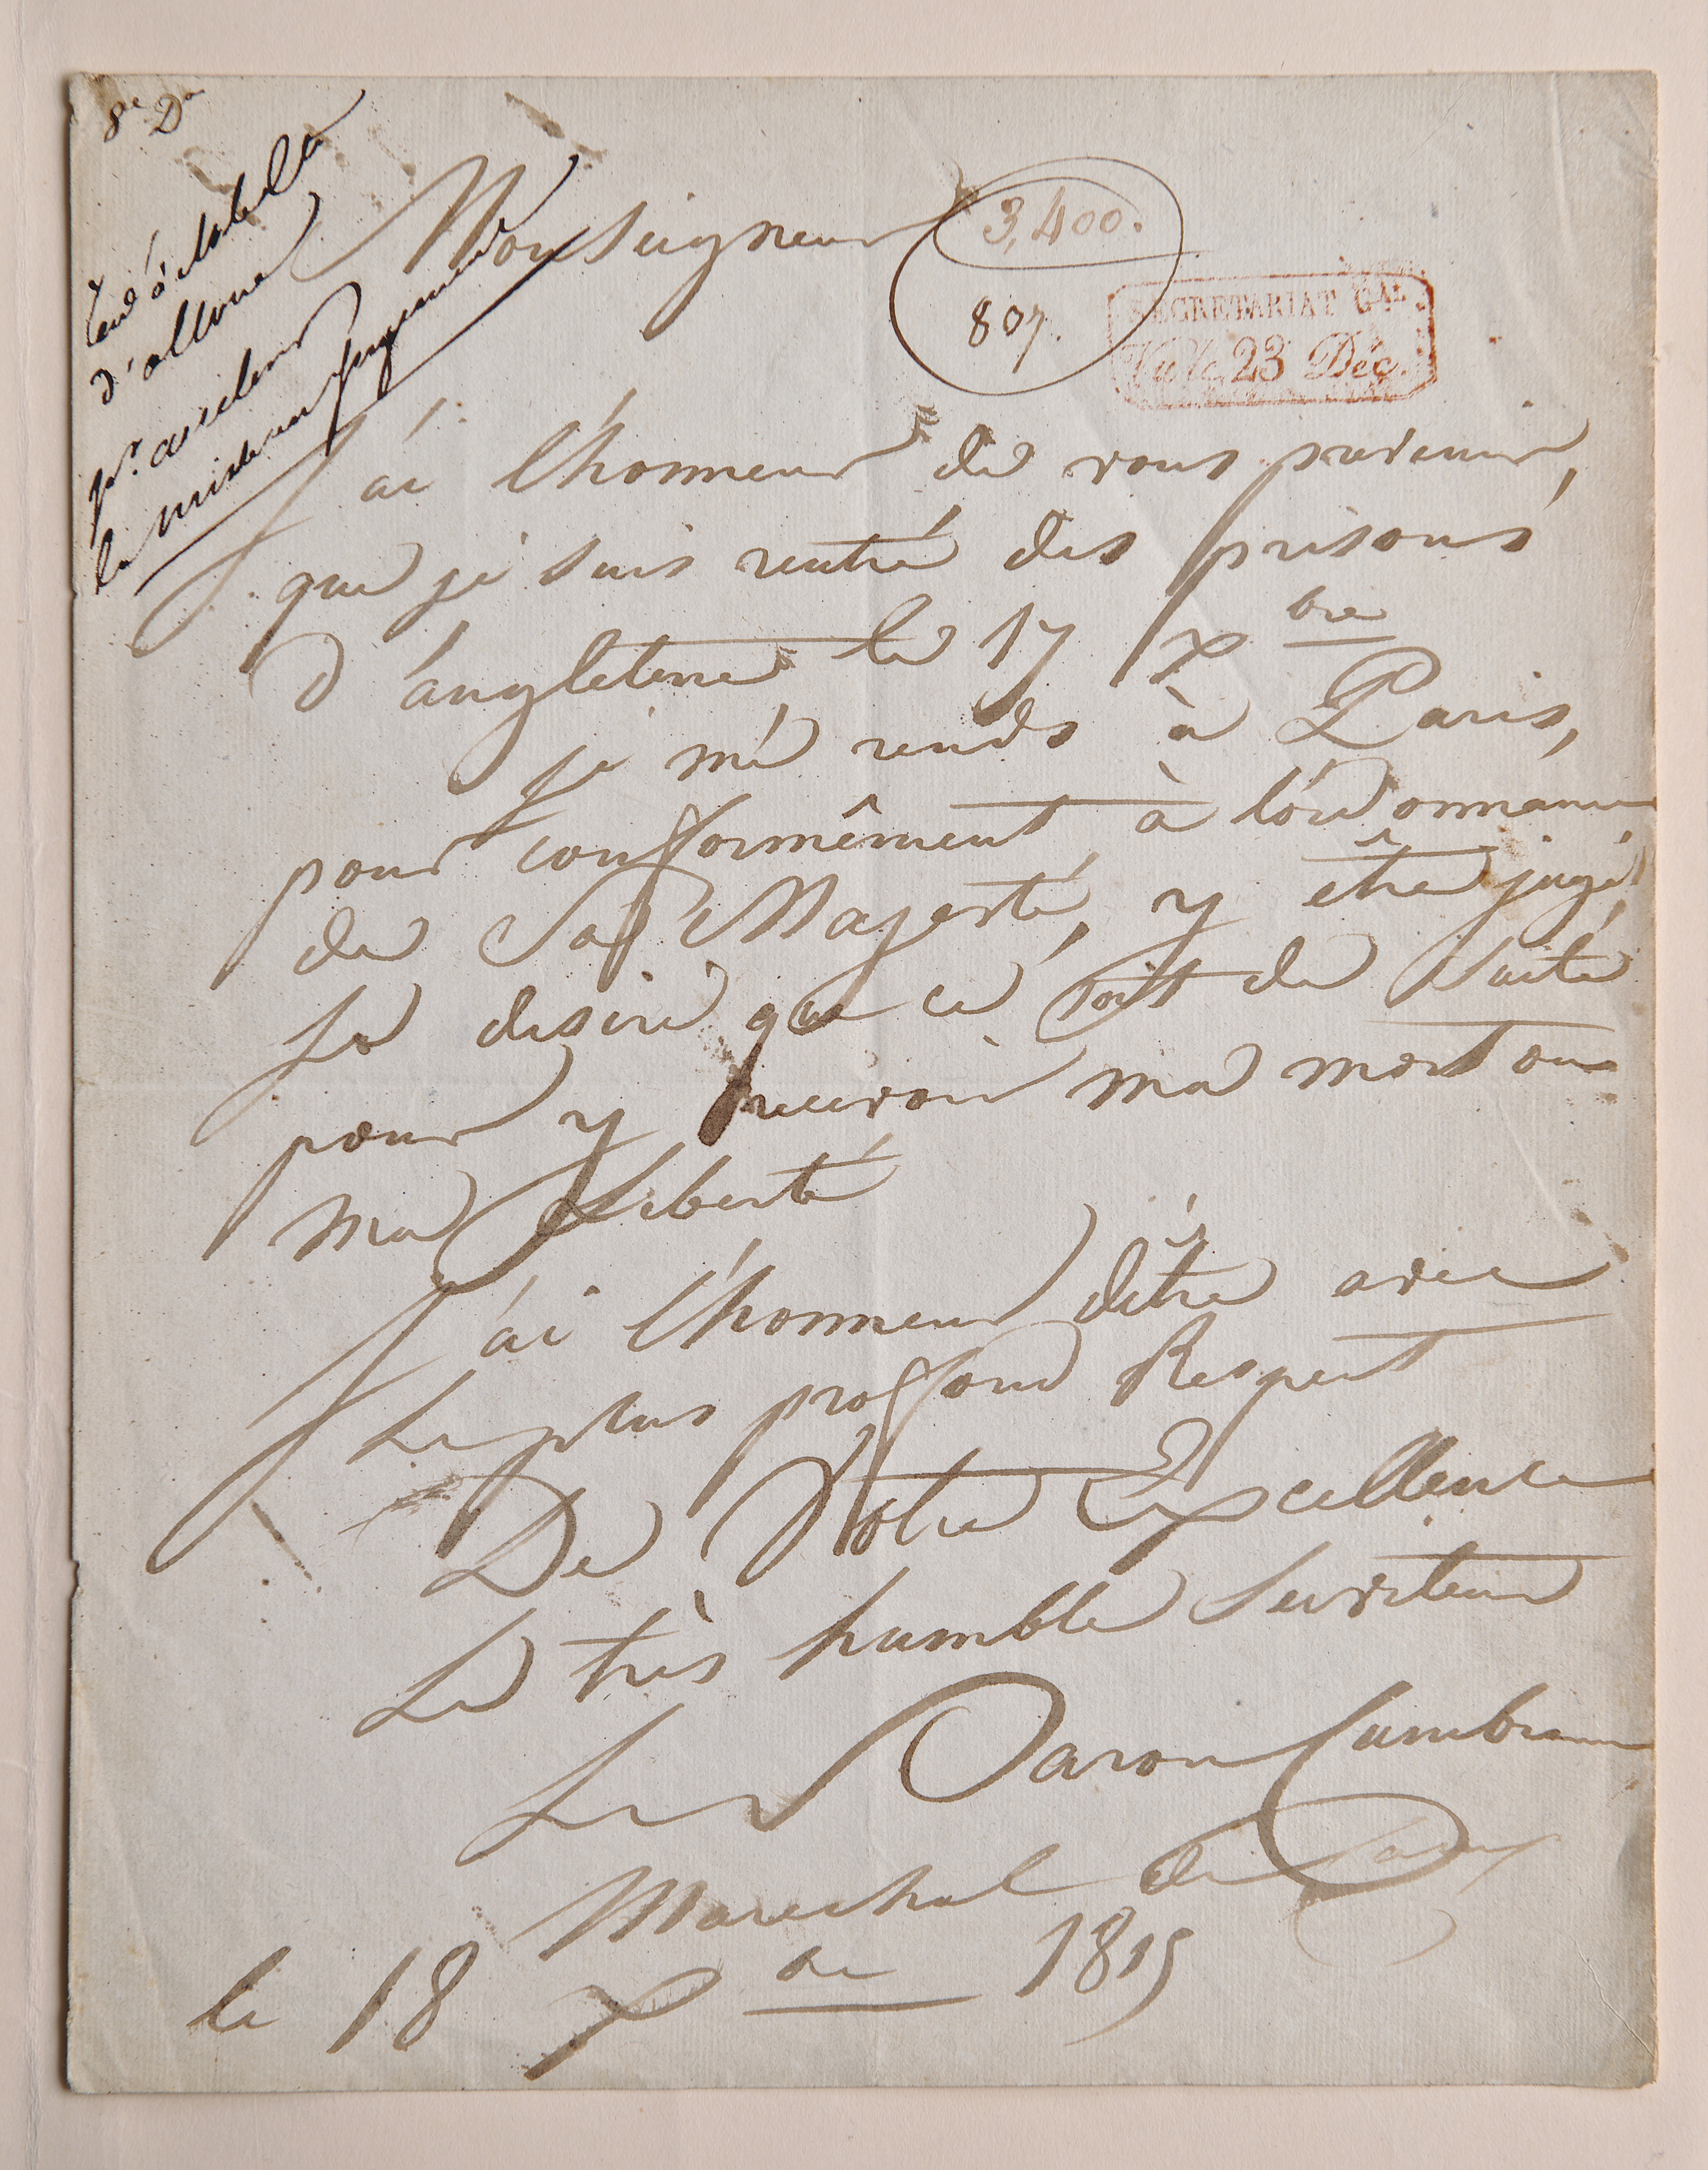 8e Don
d'allone
pr. accélérer
la mise en jugement
Monseigneur
3,400.
807.
SECRETARIAT GAL
23 Déc.
J'ai l'honneur de vous prevenir,
que je suis rentré des prisons
d'angleterre, le 17 Xbre
je me rends à Paris,
pour conformêment à l'ordonnance
de Sa Majesté, y être jugé,
Je desire que ce soit de Suite
pour y recevoir ma mort ou
ma Liberté
J'ai l'honneur d'être avec
Le plus proffond Respect
De Votre Excellence
Le très humble Serviteur
Le Baron Cambronne
Marechal de Camp
le 18 Xbre 1815